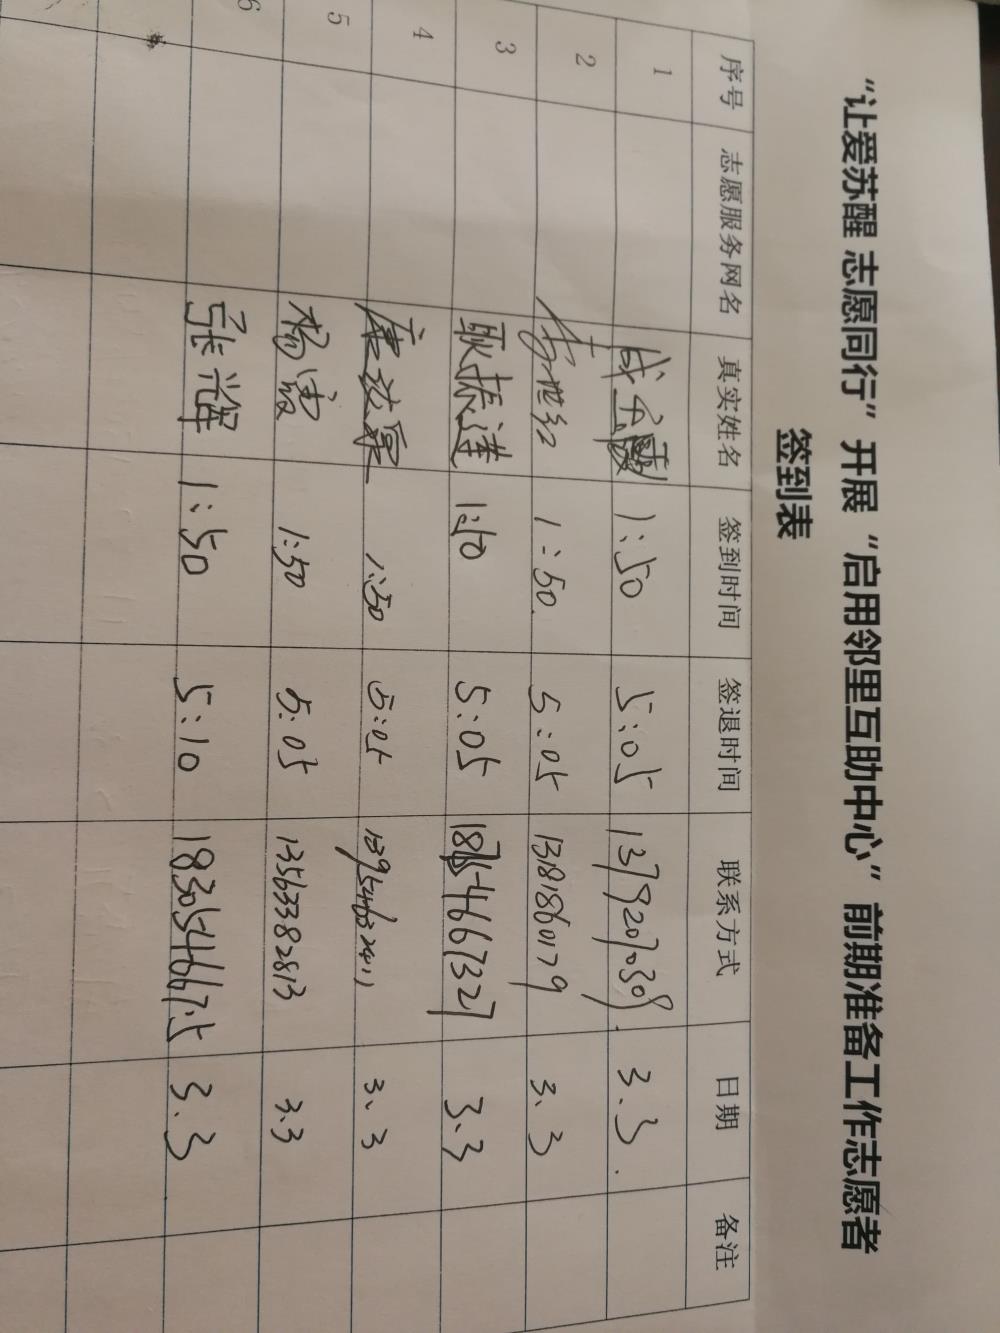 “让爱苏醒 志愿同行”开展“启用邻里互助中心”前期准备工作志愿者
签到表
序号 志愿服务网名 真实姓名 签到时间 签退时间 联系方式 日期 备注
1 1:50 5:05 1379207038 3.3.
2 李世红 1:50. 5:05 13818860179 3、3
3 耿振莲 1:50 5:05 3.3
4 1:50 5:05 3、3
5 杨霞 1:50 5:05 13563382813 3.3
6 张辉 1:50 5:10 18305466715 3.3